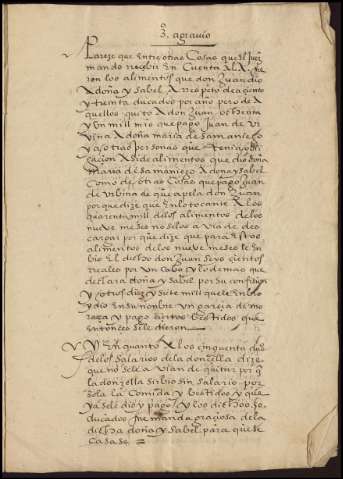 3º agravio
Pareze que entre otras Cosas que el Juez
mando rrecibir en Cuenta A los fue
ron los alimentos que don Juan dio
A doña ysabel A rrespeto de a ciento
y treinta ducados por año pero de A
quellos quito A don Juan ochenta
y Un mill mrs que pago Juan de Ur
vina A doña maria de Samaniego
y a otras personas que
de alimentos que dio doña
maria de Samaniego A doña ysabel
Como de otras Cosas que pago Juan
de Urbina de que apela don Juan
porque dize que en lo tocante A los
quarenta mill de los alimentos de los
nueve meses no se los avia de des
cargar por que dize que para estos
alimentos de los nueve meses resci
bio el dicho don Juan seys cientos
rreales por un cabo y lo demas que
declara doña ysabel por su confision
y otros diez y siete mill que el rescibio
y dio en su nonbre un pareja de mo
raga y pago ciertos bestidos que
entonces se le dieron
Y En quanto A los cinquenta ducos
de los salarios de la donzella dize
que no se le avian de quitar por q
la donzella sirbio sin salario por
sola la Comida y bestidos y que
ya se le dio y pago y los dichos 50
ducados fue manda graciosa de la
dicha doña ysabel para que se
Casase